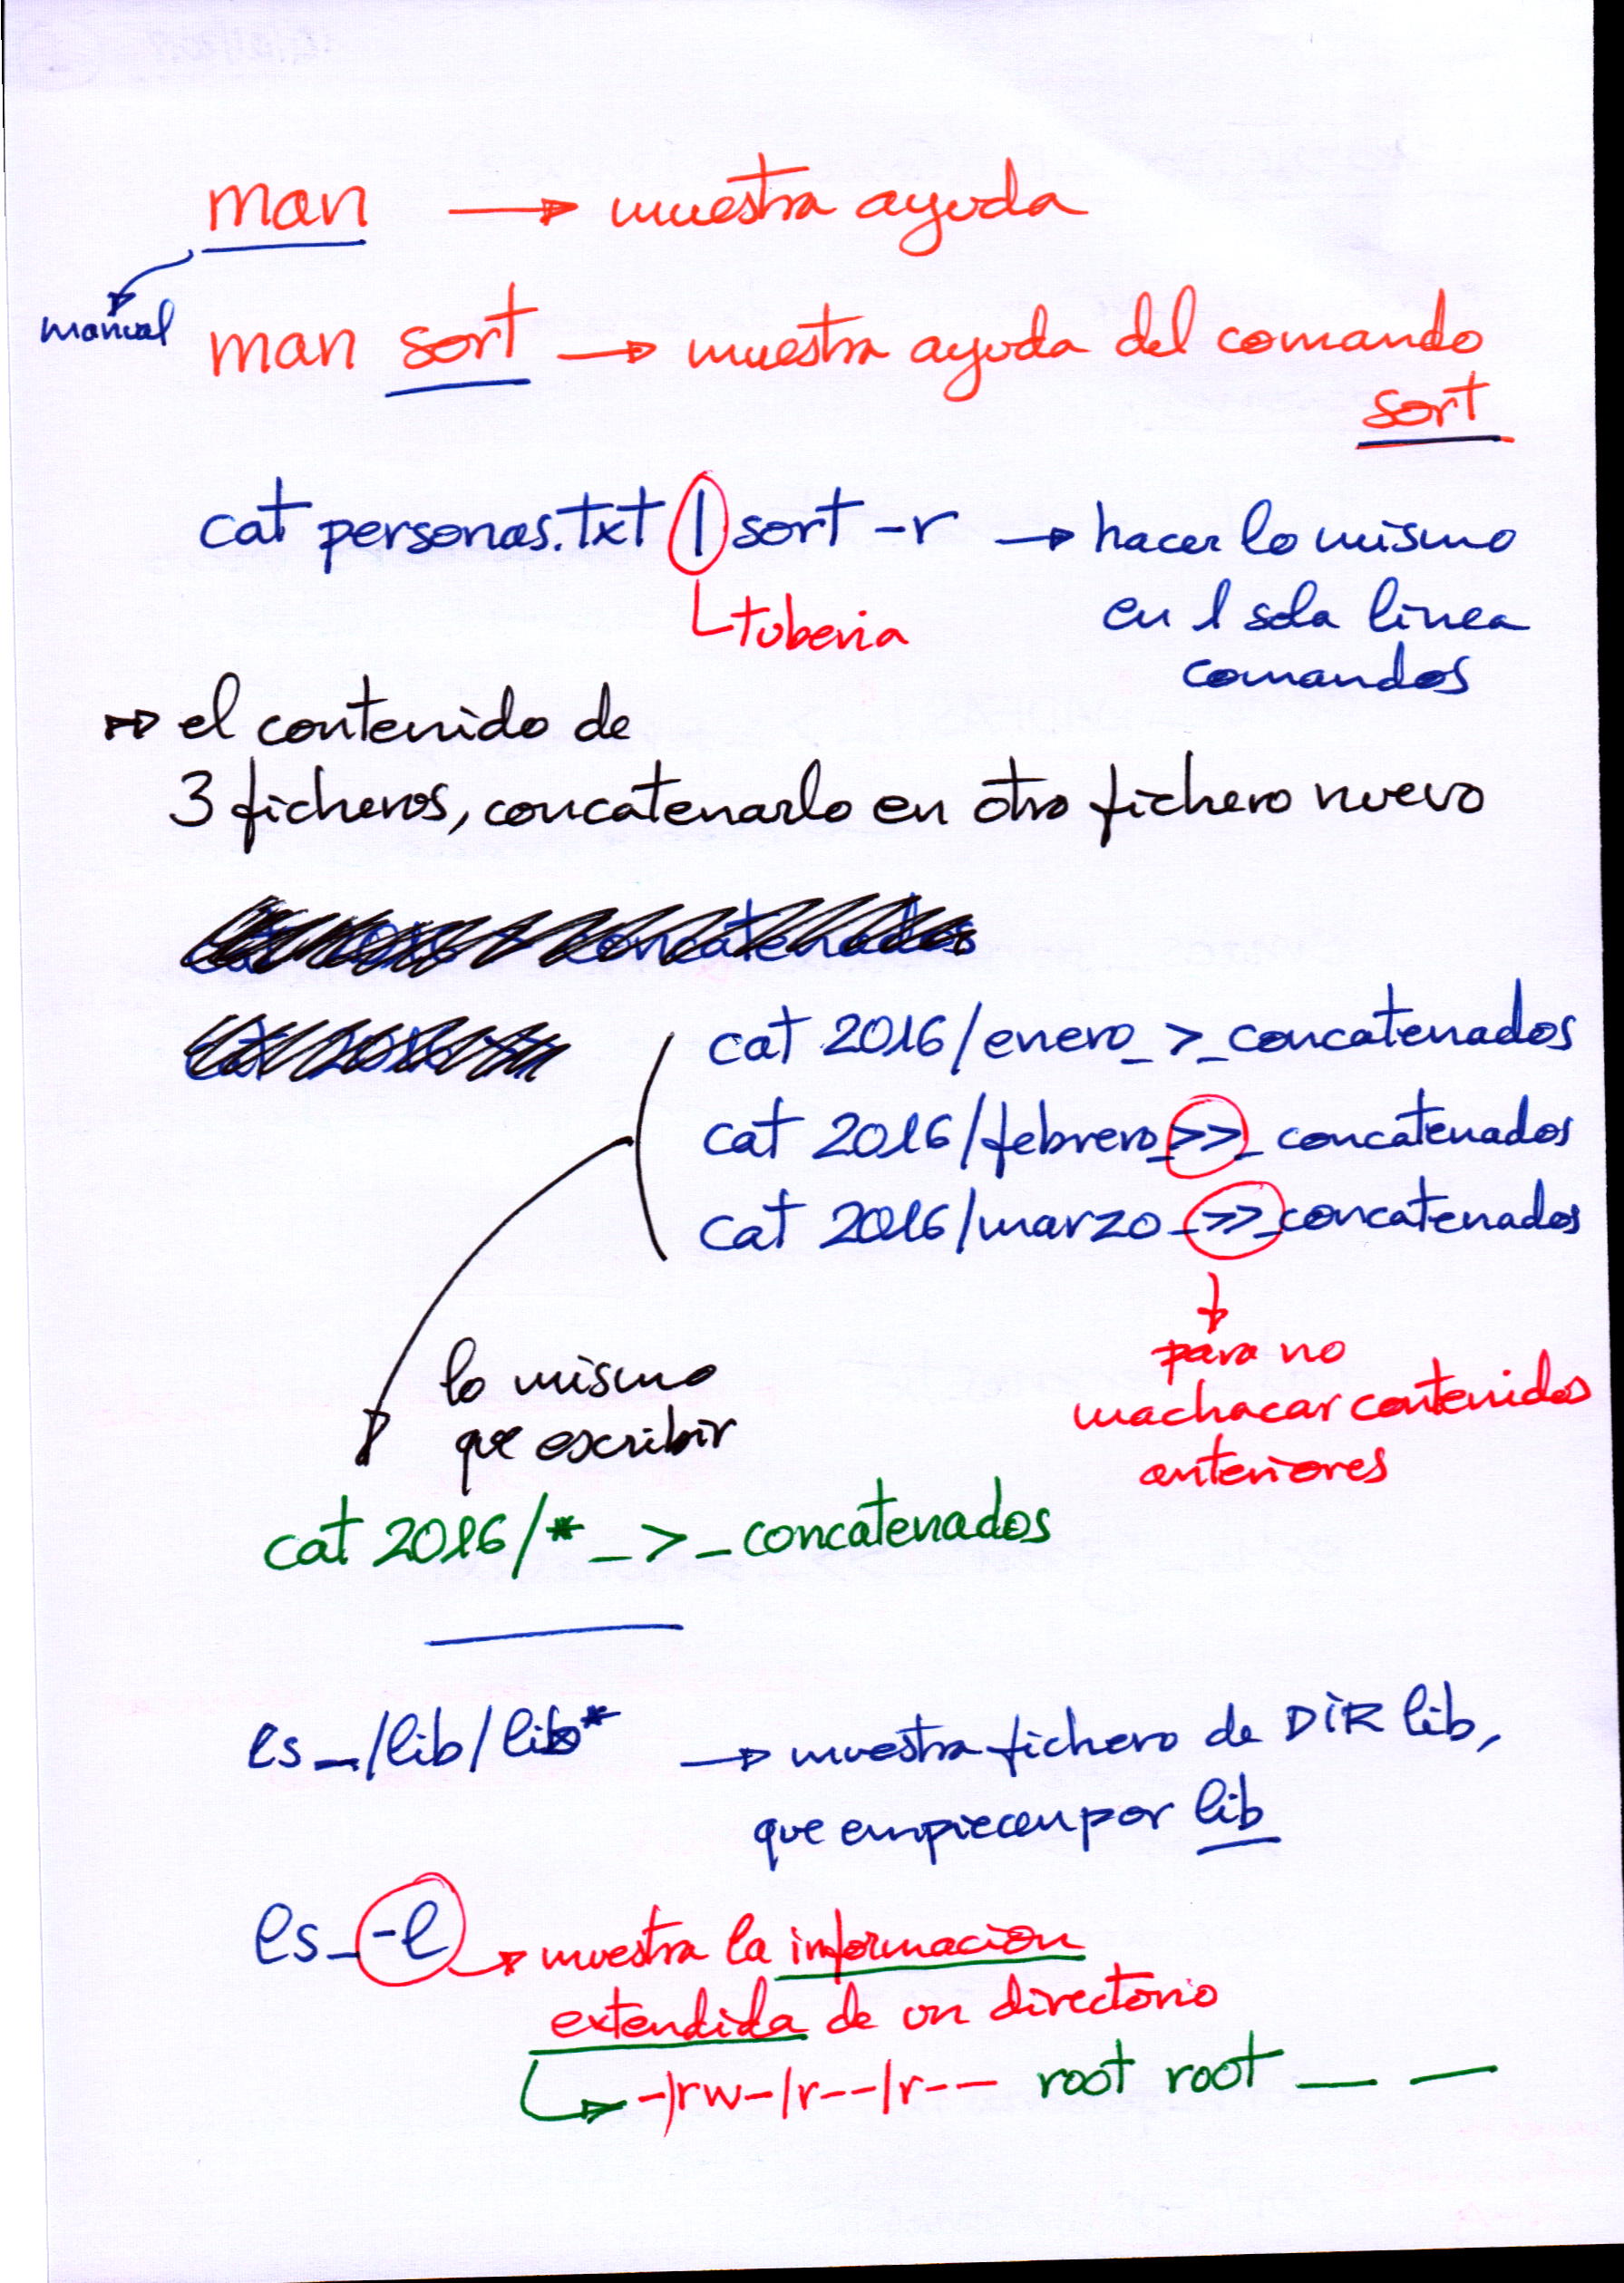 man → muestra ayuda
manual
man sort → muestra ayuda del comando
sort
cat personas.txt | sort -r → hacer lo mismo
tuberia
en 1 sola linea
comandos
→ el contenido de
3 ficheros, concatenarlo en otro fichero nuevo
concatenados
cat 2016/enero_>_concatenados
cat 2016/febrero_>>_concatenados
cat 2016/marzo_>>_concatenados
para no
machacar contenidos
anteriores
lo mismo
que escribir
cat 2016/*_>_concatenados
ls_/lib/lib* → muestra fichero de DIR lib,
que empiecen por lib
ls_-l → muestra la información
extendida de un directorio
→ -/rw-/r--/r-- root root __ __